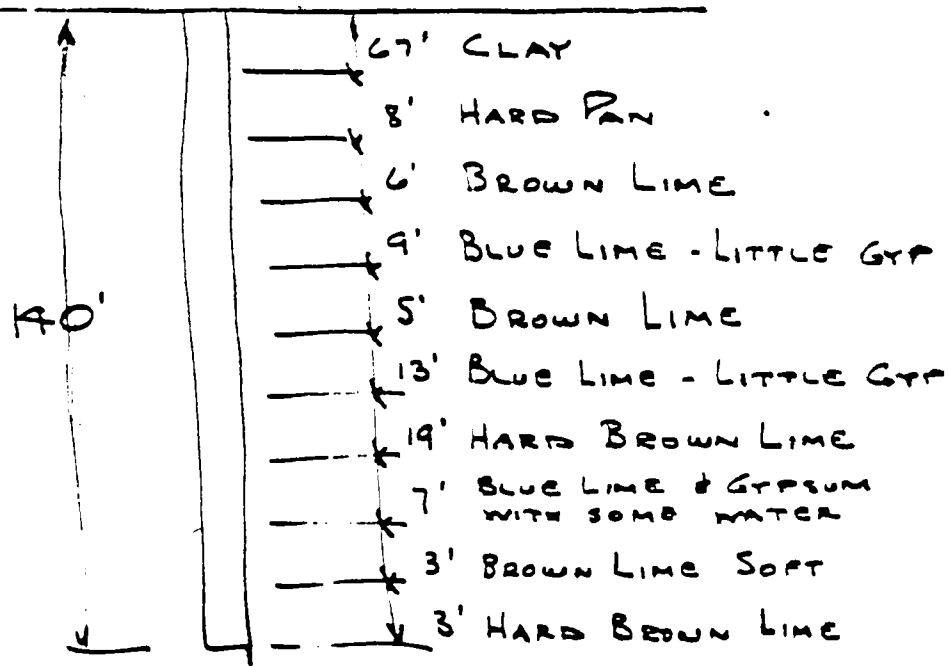 67' CLAY
8' HARD PAN
6' BROWN LIME
9' BLUE LIME - LITTLE GYP
140'
5' BROWN LIME
13' BLUE LIME - LITTLE GYP
19' HARD BROWN LIME
7' BLUE LIME & GYPSUM
WITH SOME WATER
3' BROWN LIME SOFT
3' HARD BROWN LIME